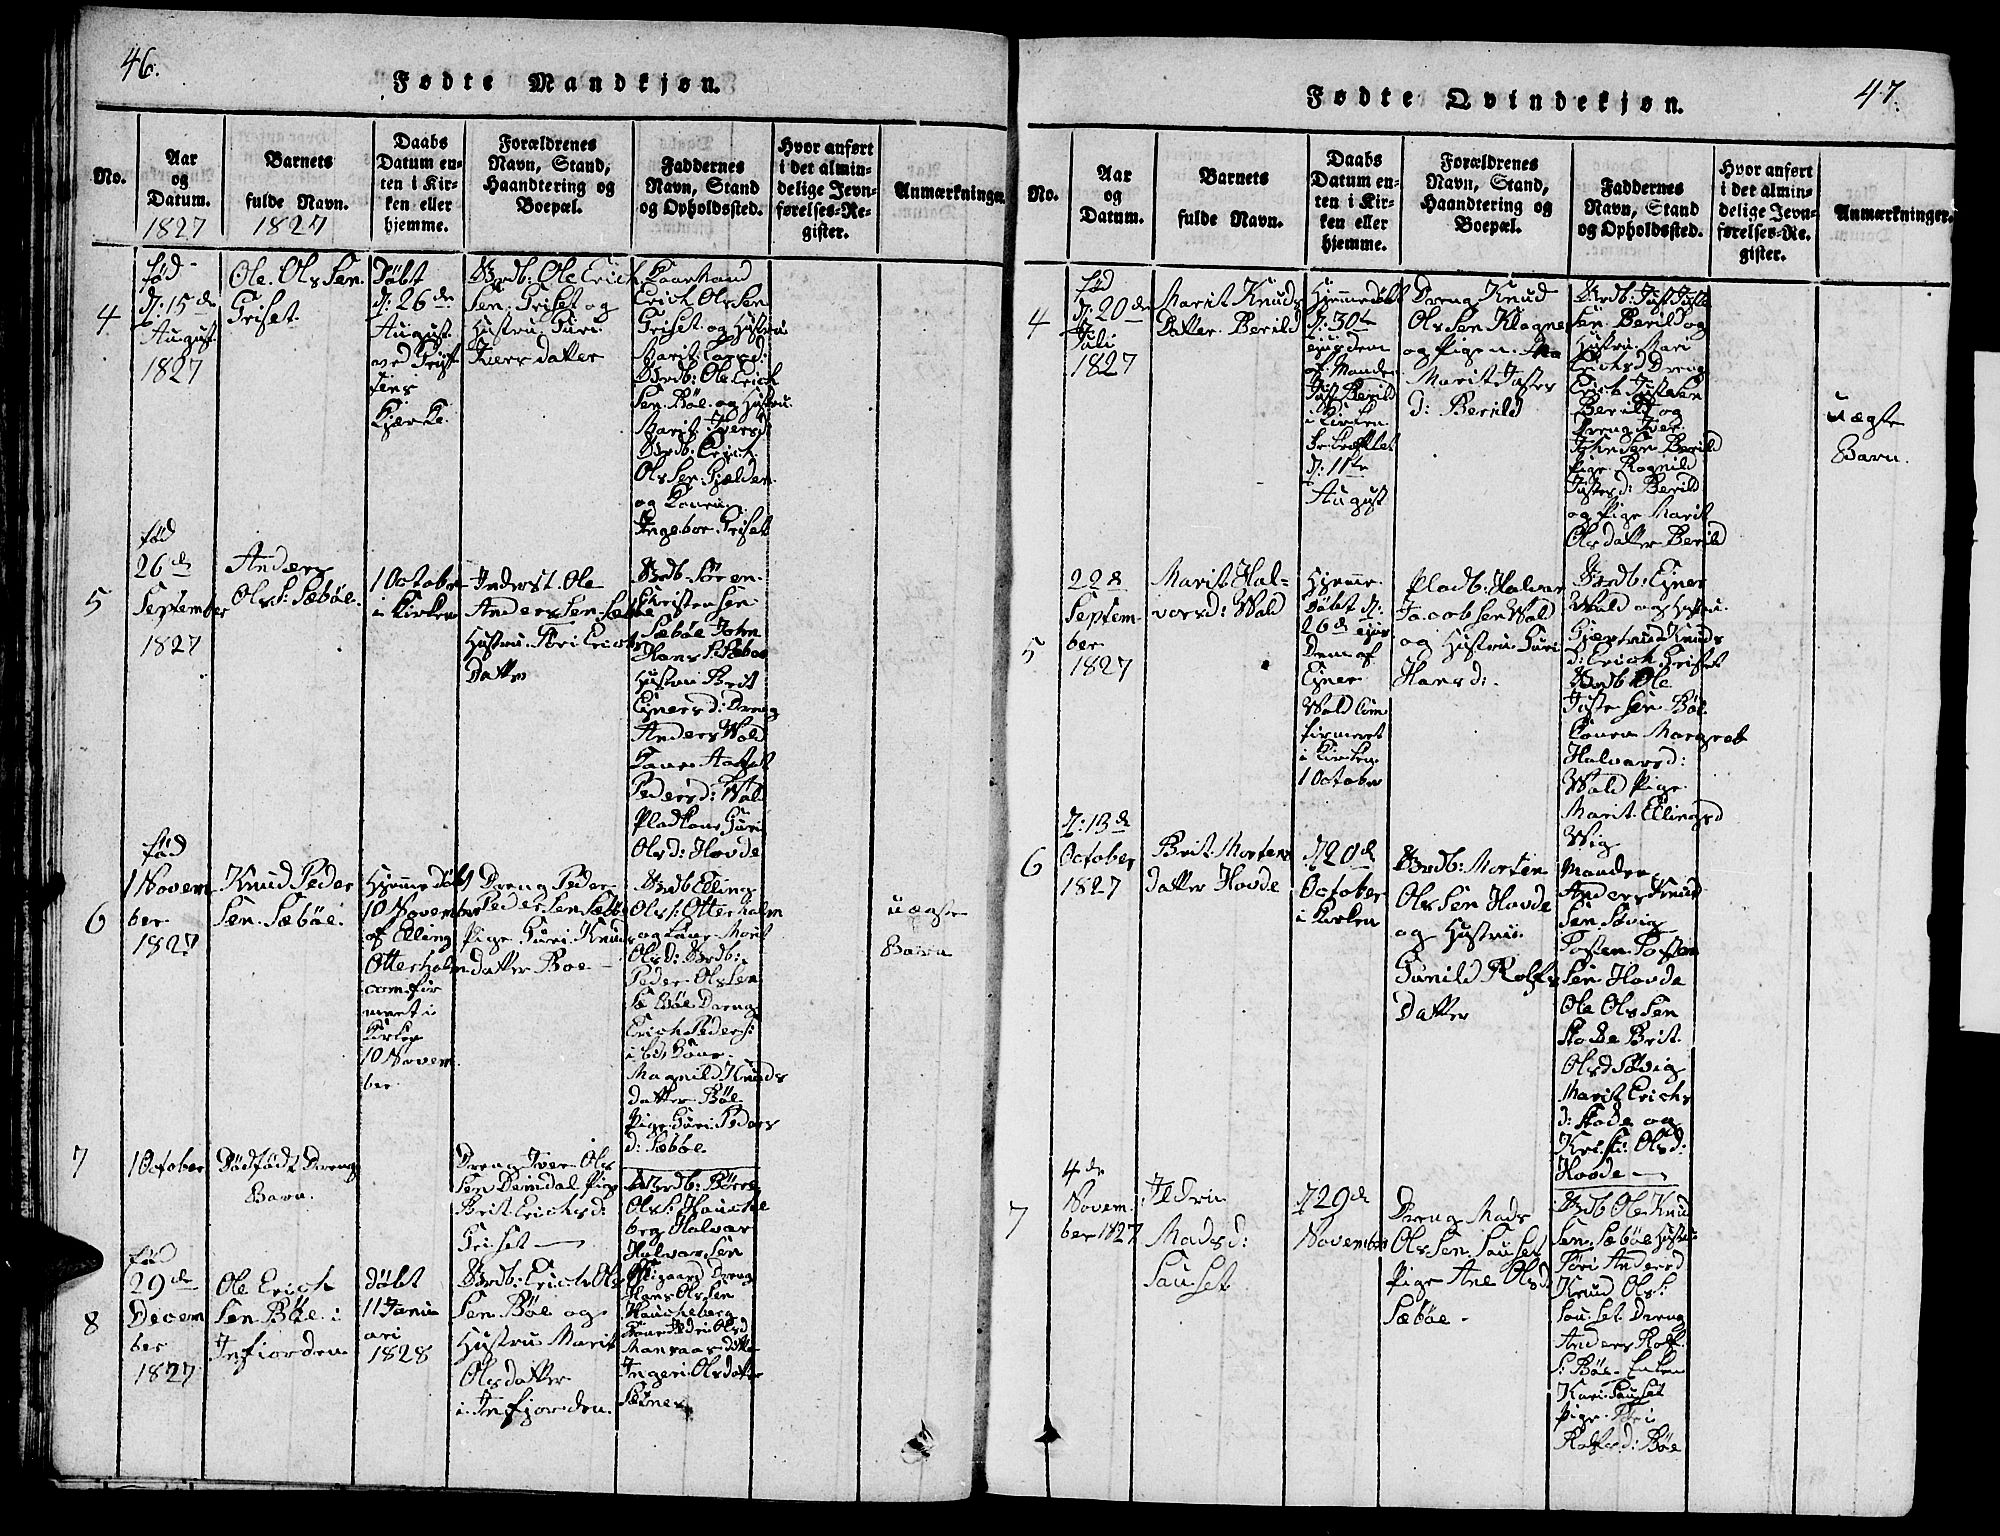 46.
Fødte Mandkjøn.
No.
Aar
og
Datum.
1827
Barnets
fulde Navn.
1827
Daabs
Datum en-
ten i Kir-
ken eller
hjemme.
Forældrenes
Navn, Stand,
Haandtering og
Boepæl.
Faddernes
Navn, Stand
og Opholdssted.
Hvor anført
i det almin-
delige Jevn-
førelses-Re-
gister.
Anmærkninger.
4
fød
d: 15de
August
1827
Ole Ols Sen
Griset
Døbt
d: 26de
August
Kjærke
Brdb: Ole Erich
Sen Griset og
Hustru Guri
Ivers datter
Erich Ols Sen
Griset og Hustru
Marit
Brdb: Ole Erich
Sen Bøe og Hustru
Marit Iversd:
Brdb: Erich
Ols Sen
og Konen
Ingebor Griset
5
fød
26de
September
1827
Anders
Ols S: Sæbøe
1 October
i Kirken
Inderst Ole
Anders Sen Sæbøe
Hustru Støri Erichs
Datter
Brdb Søren
Christen Sen
Sæbøe John
Hans S: Sæbøe
Hustru Brit
Ejnersd: Dreng
Anders Wold
Peders d: Wold
Pladkone Guri
Ols d: Hovde
6
fød
1 Novem
ber
1827
Knud Peder
Sen Sæbøe
Hjemme døbt
10 November
af Elling
Otterholm
comfir
meret i
Kirken
10 Novem
ber
Dreng Peder
Peder Sen Sæbøe
Pige Guri Knuds
datter Boe
Brdb Elling
Ols S: Otterholm
og Kone Marit
Ols d: Brdb:
Peder Ols Sen
Sæbøe Dreng
Erich Peder S:
Magnild Knuds
datter Bøe
Pige Guri Peders
d: Sæbøe
uægte
Barn
7
1 October
Dødfødt Dreng
Barn.
Dreng Iver Ols
Sen Demdal Pige
Brit Erichsd:
Griset
Brdb: Børre
Ols S: Hauche
berg Halvor
Halvor Sen
Dreng
Hans Ols Sen
Haucheberg
Kone Ildri Olsd
Ingeri Ols datter
8
fød
29de
Decem
ber
1827
Ole Erich
Sen Bøe i
Infiorden
Døbt
11 Janu
ari
1828
Brdb: Erich Ols
Sen Bøe og
Hustru Marit
Ols datter
i Infjorden
47.
Fødte Qvindekjøn.
No.
Aar
og
Datum.
Barnets
fulde Navn.
Daabs
Datum en-
ten i Kir-
ken eller
hjemme.
Forældrenes
Navn, Stand,
Haandtering og
Boepæl.
Faddernes
Navn, Stand
og Opholdssted.
Hvor anført
i det almin-
delige Jevn-
førelses-Re-
gister.
Anmærkninger.
4
fød
d: 20de
Juli
1827
Marit Knuds
Datter Berild
Hjemmedøbt
d: 30te
ejusdem
af Manden
Just Berild
i Kirken
d: 11te
August
Dreng Knud
Ols Sen Klogne
og Pigen
Marit Justes
d: Berild
Brdb: Just Juste
Sen Berild og
Hustru Mari
Erichsd Dreng
Erich Juste Sen
Berild og
Dreng Iver
John Sen Berild
Pige Ragnild
Justesd: Berild
og Pige Marit
Ols datter Berild
uægte
Barn.
5
22de
Septem
ber
1827
Marit Hal-
vorsd: Wold
Hjemme
Døbt d:
26de ejus
Dem af
Ejner
Wold Com
firmeret
i Kirken
1 October
Pladb: Halvor
Jacob Sen Wold
og Hustru Guri
Hansd:
Brdb: Ejner
Wold og Hustru
Gjertrud Knuds
d: Erich Griset
Brdb Ole
Juste Sen Bøe
Konen Margret
Halvorsd:
Wold Pige
Marit Ellingsd
Wig
6
d: 13de
October
1827
Brit Mortens
datter Hovde
d 20de
October
i Kirken
Brdb: Morten
Ols Sen Hovde
og Hustru
Gunild Rolfs
Datter
Manden
Anders Knud
Sen Søvig
Torsten Torsten
Sen Hovde
Ole Ols Sen
Stokke Brit
Olsd Søvig
Marit Erichs
d: Stode og
Kristi Olsd:
Hovde
7
4de
Novem
ber 1827
Ildri
Madsd:
Sauset
d 29de
November
Dreng Mads
Ols Sen Sauset
Pige Ane Olsd
Sæbøe
Brdb Ole Knud
Sen Sæbøe Hustru
Støri Andersd
Knud Ols S:
Sauset Dreng
Anders Rolf
S: Bøe Enken
Kari Sauset
Pige
Rolfsd: Bøe